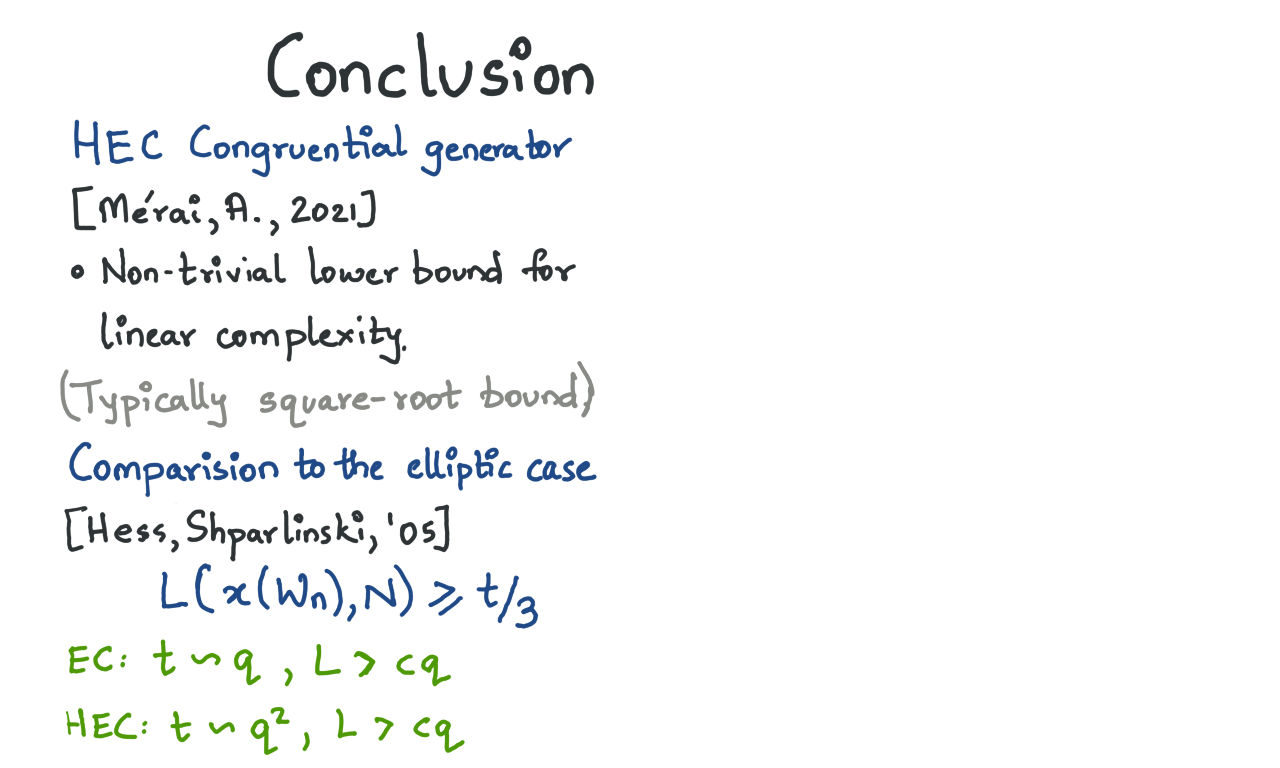 Conclusion
HEC Congruential generator
[Mérai, A., 2021]
• Non-trivial lower bound for
linear complexity.
(Typically square-root bound)
Comparision to the elliptic case
[Hess, Shparlinski, '05]
L(x(Wn), N) ⩾ t/3
EC: t ∽ q , L > cq
HEC: t ∽ q², L > cq